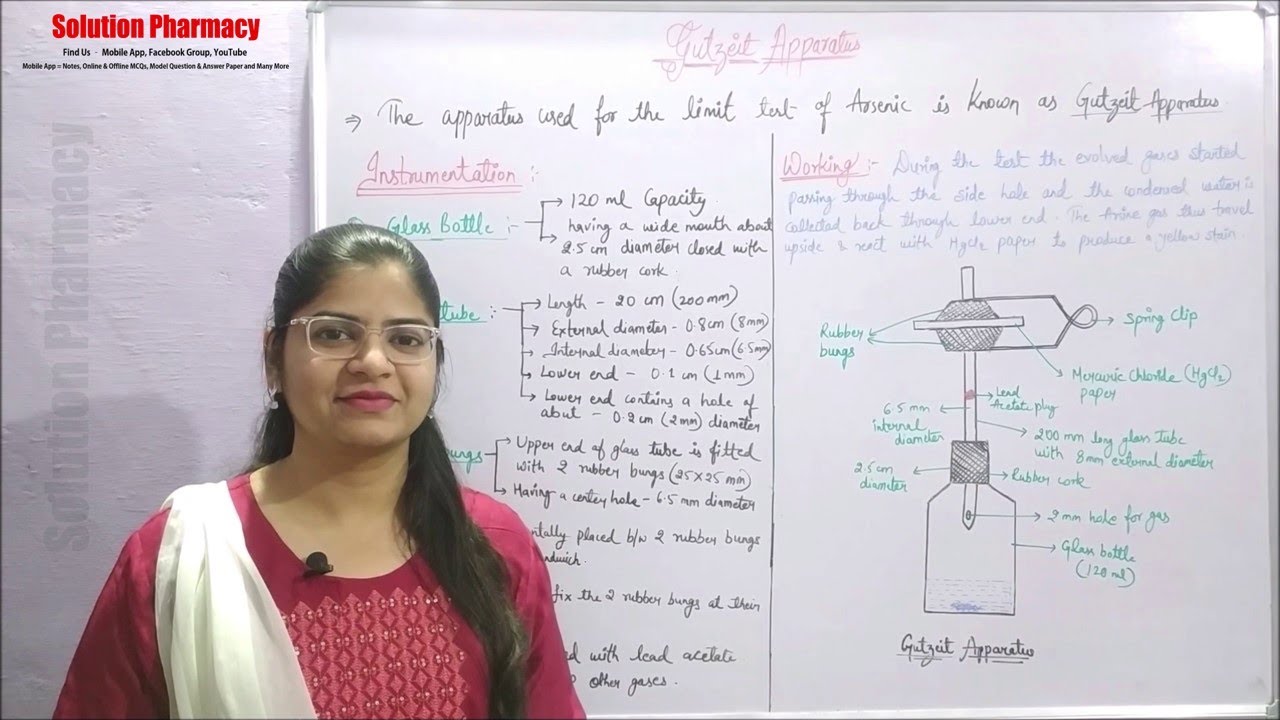 Solution Pharmacy
Find Us - Mobile App, Facebook Group, YouTube
Mobile App = Notes, Online & Offline MCQs, Model Question & Answer Paper and Many More
Solution Pharmacy
Gutzeit Apparatus
⇒ The apparatus used for the limit test of Arsenic is Known as Gutzeit Apparatus.
Instrumentation :-
Glass Bottle :-
120 ml Capacity.
having a wide mouth about
2.5 cm diameter closed with
a rubber cork.
tube :-
Length - 20 cm (200mm)
External diameter - 0.8cm (8mm)
Internal diameter - 0.65cm (6.5mm)
Lower end - 0.1 cm (1mm)
Lower end contains a hole of
about - 0.2cm (2mm) diameter
ungs
Upper end of glass tube is fitted
with 2 rubber bungs (25×25 mm)
Having a center hole - 6.5 mm diameter
ntally placed b/w 2 rubber bungs
ndwich.
fix the 2 rubber bungs at their
ed with lead acetate
other gases.
Working :- During the test the evolved gases started
passing through the side hole and the condensed water is
collected back through lower end. The Arine gas thus travel
upside & react with HgCl2 paper to produce a yellow stain.
Rubber
bungs
Spring Clip
Mercuric Chloride (HgCl2)
paper
Lead
Acetate plug
6.5 mm
internal
diameter
200 mm long glass tube
with 8mm external diameter
2.5cm
diameter
Rubber cork
2 mm hole for gas
Glass bottle
(120 ml)
Gutzeit Apparatus